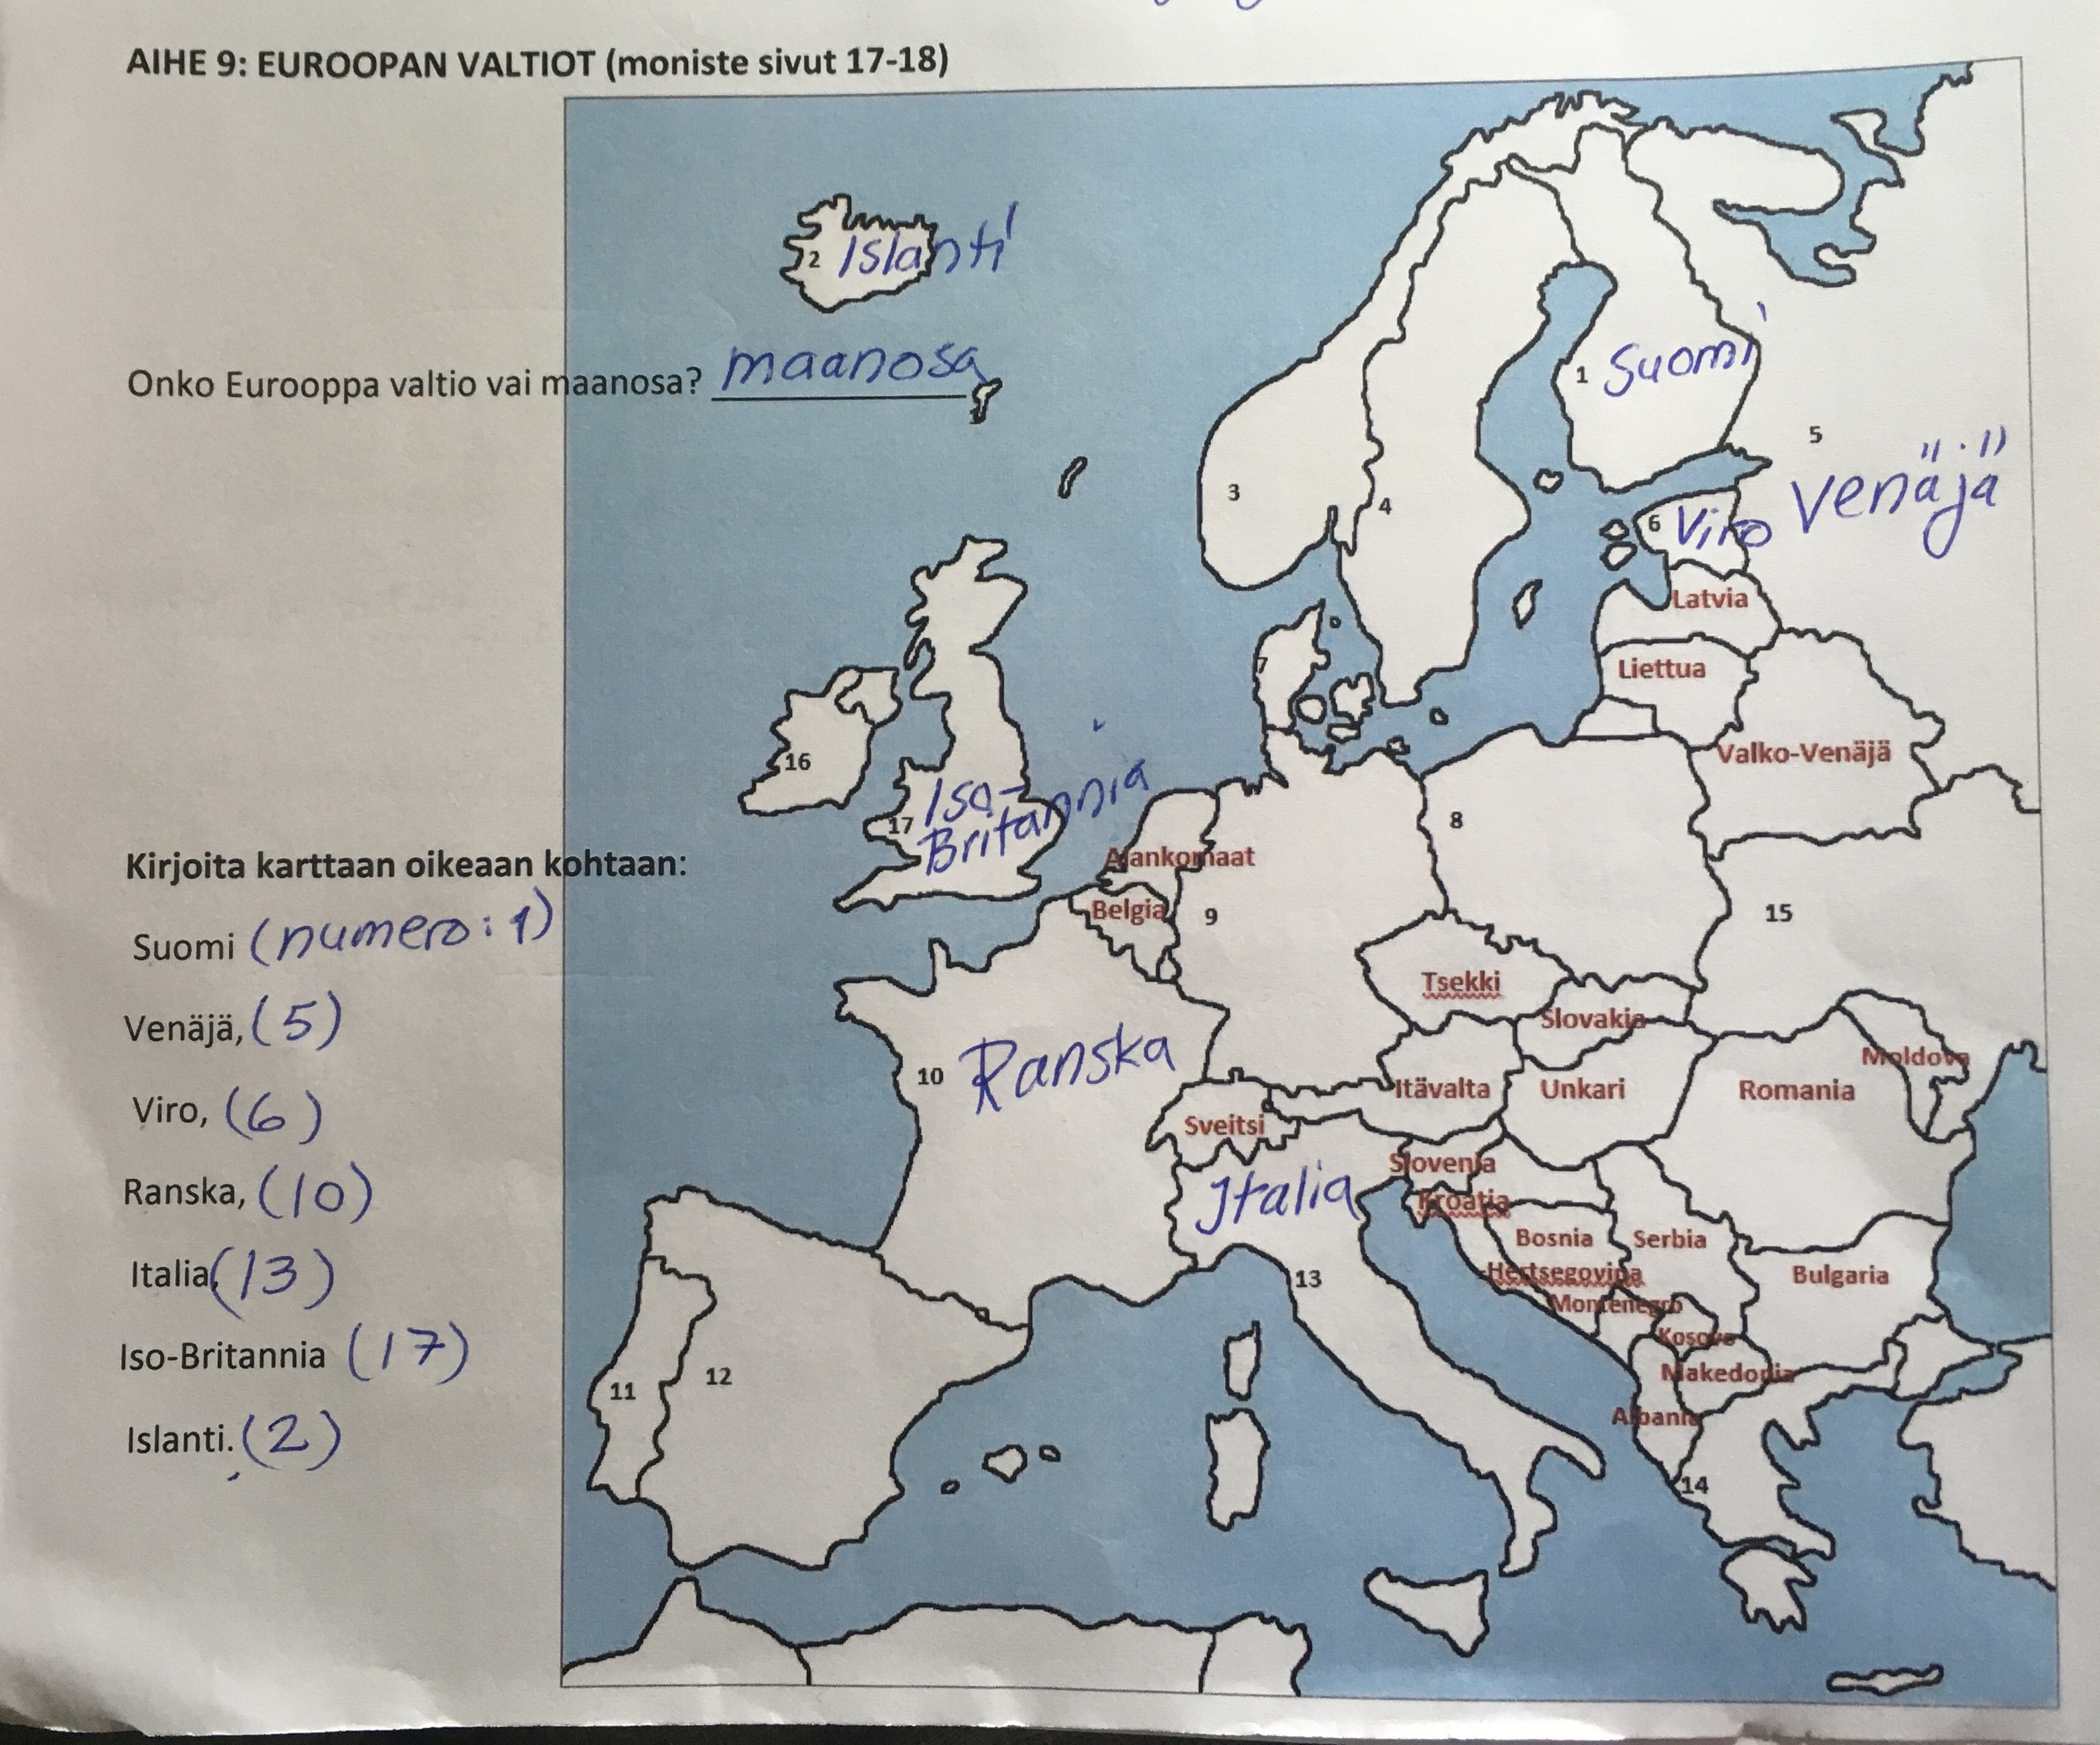 AIHE 9: EUROOPAN VALTIOT (moniste sivut 17-18)
2 Islanti
Onko Eurooppa valtio vai maanosa? maanosa
1 Suomi
5
Venäjä
3
4
6 Viro
Latvia
7
Liettua
16
Valko-Venäjä
17 Iso-
Britannia
8
Alankomaat
Kirjoita karttaan oikeaan kohtaan:
Belgia
9
15
Suomi (numero: 1)
Tsekki
Slovakia
Venäjä, (5)
10 Ranska
Moldova
Itävalta
Unkari
Romania
Viro, (6)
Sveitsi
Slovenia
Ranska, (10)
Italia
Kroatia
Bosnia
Serbia
Italia, (13)
13
Hertsegovina
Bulgaria
Montenegro
Kosovo
Iso-Britannia (17)
11
12
Makedonia
Albania
Islanti. (2)
14